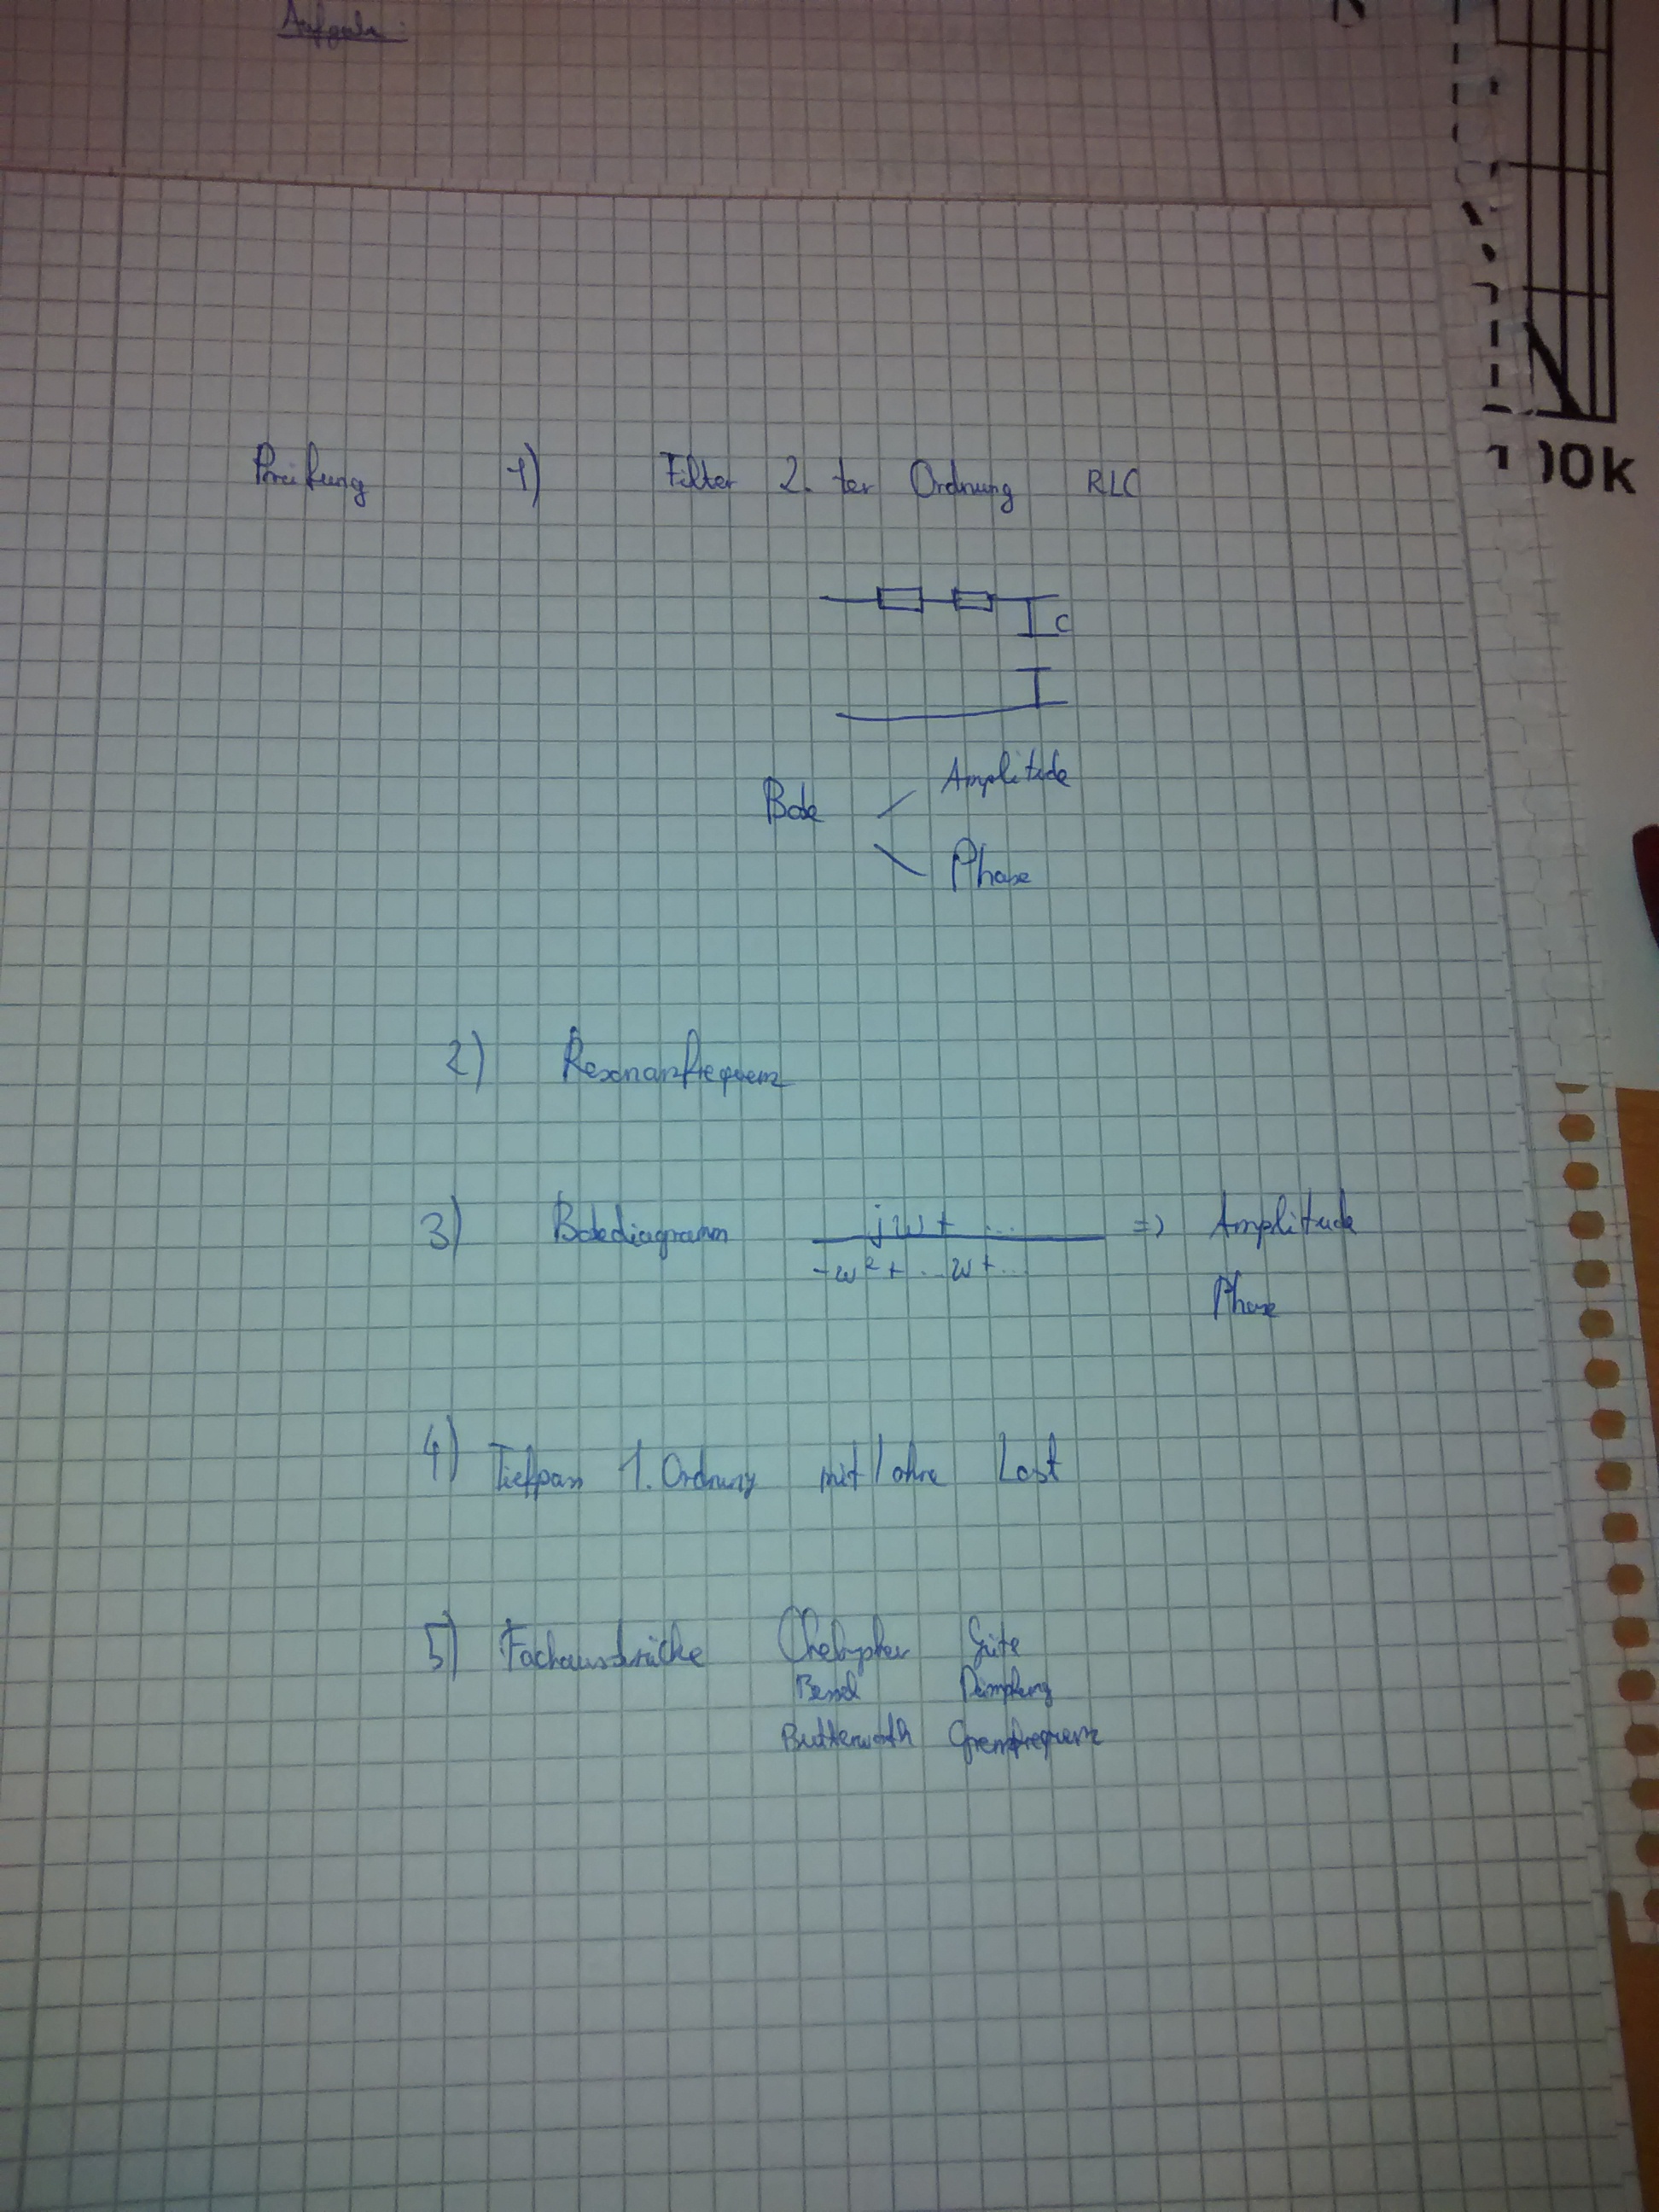 Aufgabe:
Prüfung 1) Filter 2. ter Ordnung RLC
C
Bode Amplitude
Phase
2) Resonanzfrequenz
3) Bodediagramm jw + ... => Amplitude
-w² + ...w + ...
Phase
4) Tiefpass 1. Ordnung mit / ohne Last
5) Fachausdrücke Güte
Bessel Dämpfung
Butterworth Grenzfrequenz
100k